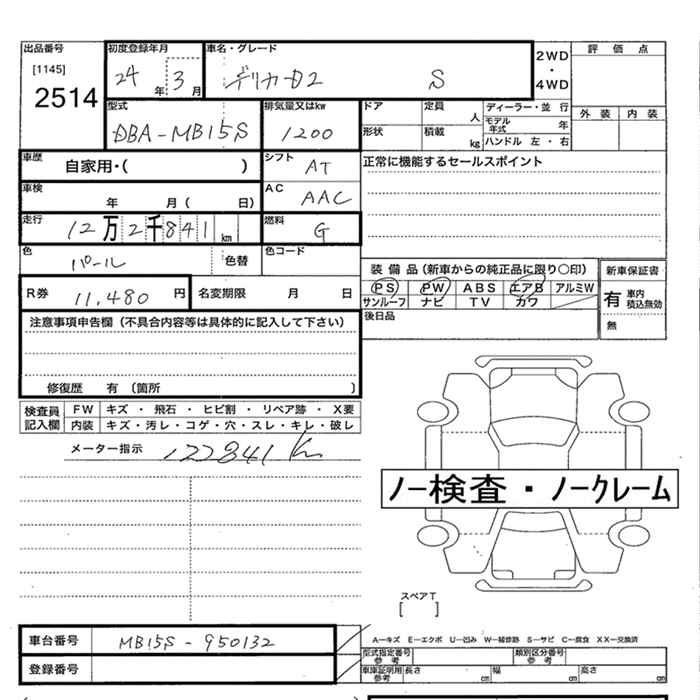 出品番号 初度登録年月 車名・グレード 2WD・4WD 評価点
[1145] 24年 3月 デリカD2 S
2514
外装 内装
型式 排気量又はkw ドア 定員 人 ディーラー・並行
DBA-MB15S 1200 形状 積載 kg モデル年式 年
ハンドル 左・右
車歴 自家用・( ) シフト AT 正常に機能するセールスポイント
車検 年 月( 日) AC AAC
走行 12万2千841km 燃料 G
色 パール 色替 色コード
装備品(新車からの純正品に限り○印) 新車保証書
R券 11,480円 名変期限 月 日
PS PW ABS エアB アルミW 有 車内積込無効
サンルーフ ナビ TV カワ 無
後日品
注意事項申告欄(不具合内容等は具体的に記入して下さい)
修復歴 有(箇所 )
検査員記入欄 FW キズ・飛石・ヒビ割・リペア跡・X要
内装 キズ・汚レ・コゲ・穴・スレ・キレ・破レ
メーター指示 122841 Km
ノー検査・ノークレーム
スペアT
[ ]
A-キズ E-エクボ U-凹み W-補修跡 S-サビ C-腐食 XX-交換済
車台番号 MB15S-950132 型式指定番号 参考 類別区分番号 参考
登録番号 車庫証明用 参考 長さ cm 幅 cm 高さ cm